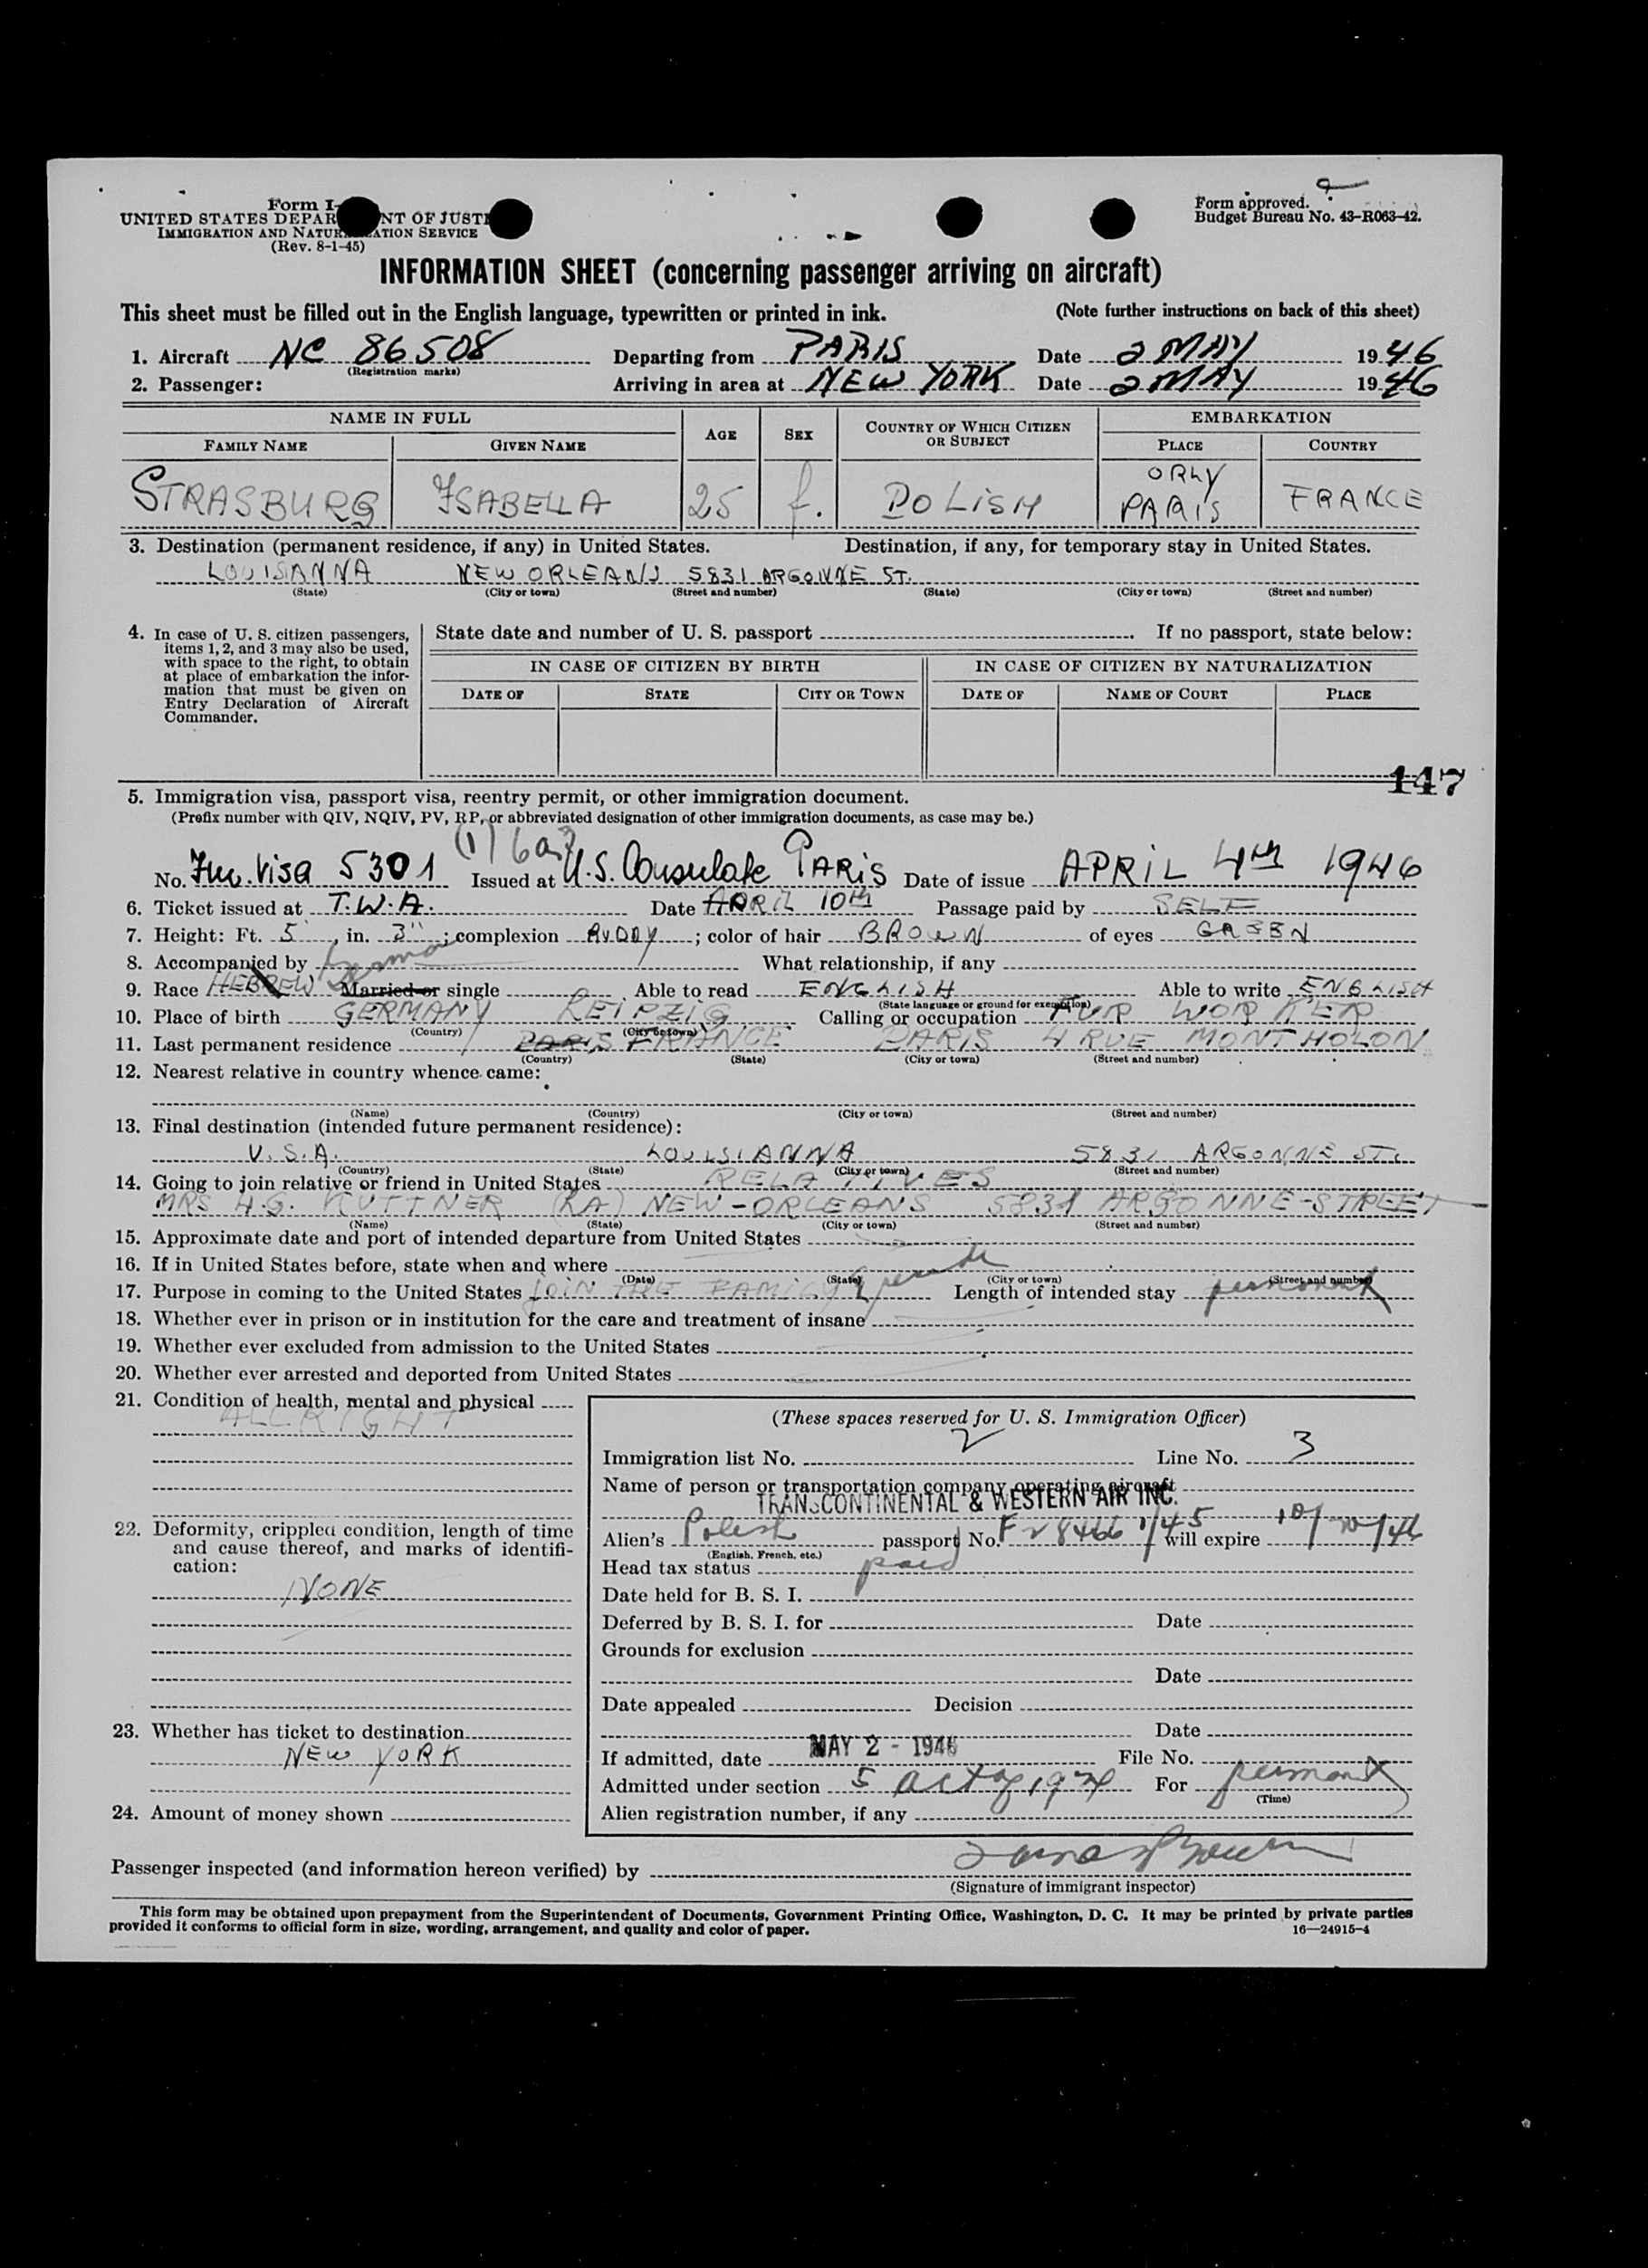 Form I-
UNITED STATES DEPAR NT OF JUSTI
IMMIGRATION AND NATUR ATION SERVICE
(Rev. 8-1-45)
Form approved.
Budget Bureau No. 43-R063-42.
INFORMATION SHEET (concerning passenger arriving on aircraft)
This sheet must be filled out in the English language, typewritten or printed in ink. (Note further instructions on back of this sheet)
1. Aircraft NC 86508 Departing from PARIS Date 2 MAY 1946
(Registration marks)
2. Passenger: Arriving in area at NEW YORK Date 2 MAY 1946
NAME IN FULL AGE SEX COUNTRY OF WHICH CITIZEN OR SUBJECT EMBARKATION
FAMILY NAME GIVEN NAME PLACE COUNTRY
STRASBURG YSABELLA 25 f. POLISH ORLY PARIS FRANCE
3. Destination (permanent residence, if any) in United States. Destination, if any, for temporary stay in United States.
LOUISANNA NEW ORLEANS 5831 ARGONNE ST.
(State) (City or town) (Street and number) (State) (City or town) (Street and number)
4. In case of U. S. citizen passengers, items 1, 2, and 3 may also be used, with space to the right, to obtain at place of embarkation the information that must be given on Entry Declaration of Aircraft Commander.
State date and number of U. S. passport . If no passport, state below:
IN CASE OF CITIZEN BY BIRTH IN CASE OF CITIZEN BY NATURALIZATION
DATE OF STATE CITY OR TOWN DATE OF NAME OF COURT PLACE
147
5. Immigration visa, passport visa, reentry permit, or other immigration document.
(Prefix number with QIV, NQIV, PV, RP, or abbreviated designation of other immigration documents, as case may be.)
No. Im. Visa 5301 Issued at U.S. Consulate PARIS Date of issue APRIL 4th 1946
6. Ticket issued at T.W.A. Date APRIL 10th Passage paid by SELF
7. Height: Ft. 5 , in. 3" ; complexion RUDDY ; color of hair BROWN of eyes GREEN
8. Accompanied by What relationship, if any
9. Race HEBREW German Married or single Able to read ENGLISH Able to write ENGLISH
(State language or ground for exemption)
10. Place of birth GERMANY LEIPZIG Calling or occupation FUR WORKER
(Country) (City or town)
11. Last permanent residence PARIS FRANCE PARIS 4 RUE MONTHOLON
(Country) (State) (City or town) (Street and number)
12. Nearest relative in country whence came:
(Name) (Country) (City or town) (Street and number)
13. Final destination (intended future permanent residence):
U.S.A. LOUISIANNA 5831 ARGONNE ST.
(Country) (State) (City or town) (Street and number)
14. Going to join relative or friend in United States RELATIVES
MRS H.G. KUTTNER (LA) NEW-ORLEANS 5831 ARGONNE-STREET
(Name) (State) (City or town) (Street and number)
15. Approximate date and port of intended departure from United States
16. If in United States before, state when and where
(Date) (State) (City or town) (Street and number)
17. Purpose in coming to the United States JOIN THE FAMILY Length of intended stay permanent
18. Whether ever in prison or in institution for the care and treatment of insane
19. Whether ever excluded from admission to the United States
20. Whether ever arrested and deported from United States
21. Condition of health, mental and physical
ALLRIGHT
22. Deformity, crippled condition, length of time and cause thereof, and marks of identification:
NONE
23. Whether has ticket to destination
NEW YORK
24. Amount of money shown
(These spaces reserved for U. S. Immigration Officer)
Immigration list No. 2 Line No. 3
Name of person or transportation company operating aircraft
TRANSCONTINENTAL & WESTERN AIR INC.
Alien's Polish passport No. F 28466 1/45 will expire 10/20/46
(English, French, etc.)
Head tax status paid
Date held for B. S. I.
Deferred by B. S. I. for Date
Grounds for exclusion
Date
Date appealed Decision
Date
If admitted, date MAY 2 - 1946 File No.
Admitted under section 5 act of 1924 For permanent
(Time)
Alien registration number, if any
Passenger inspected (and information hereon verified) by
(Signature of immigrant inspector)
This form may be obtained upon prepayment from the Superintendent of Documents, Government Printing Office, Washington, D. C. It may be printed by private parties
provided it conforms to official form in size, wording, arrangement, and quality and color of paper. 16—24915-4